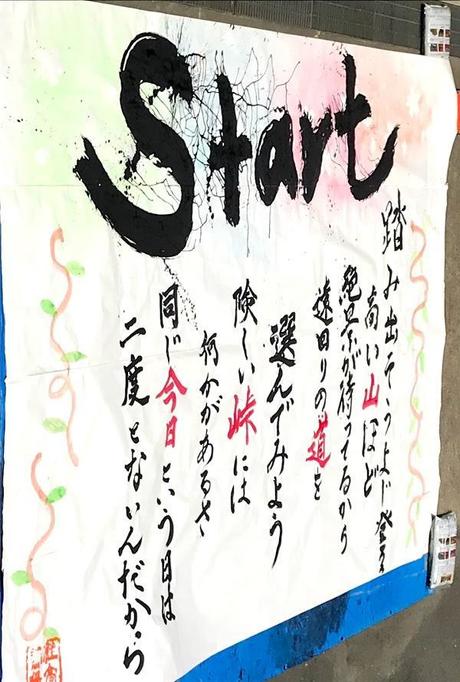 Start
踏み出そうよじ登る
高い山ほど
絶景が待ってるから
遠回りの道を
選んでみよう
険しい峠には
何かがあるさ
同じ今日という日は
二度とないんだから